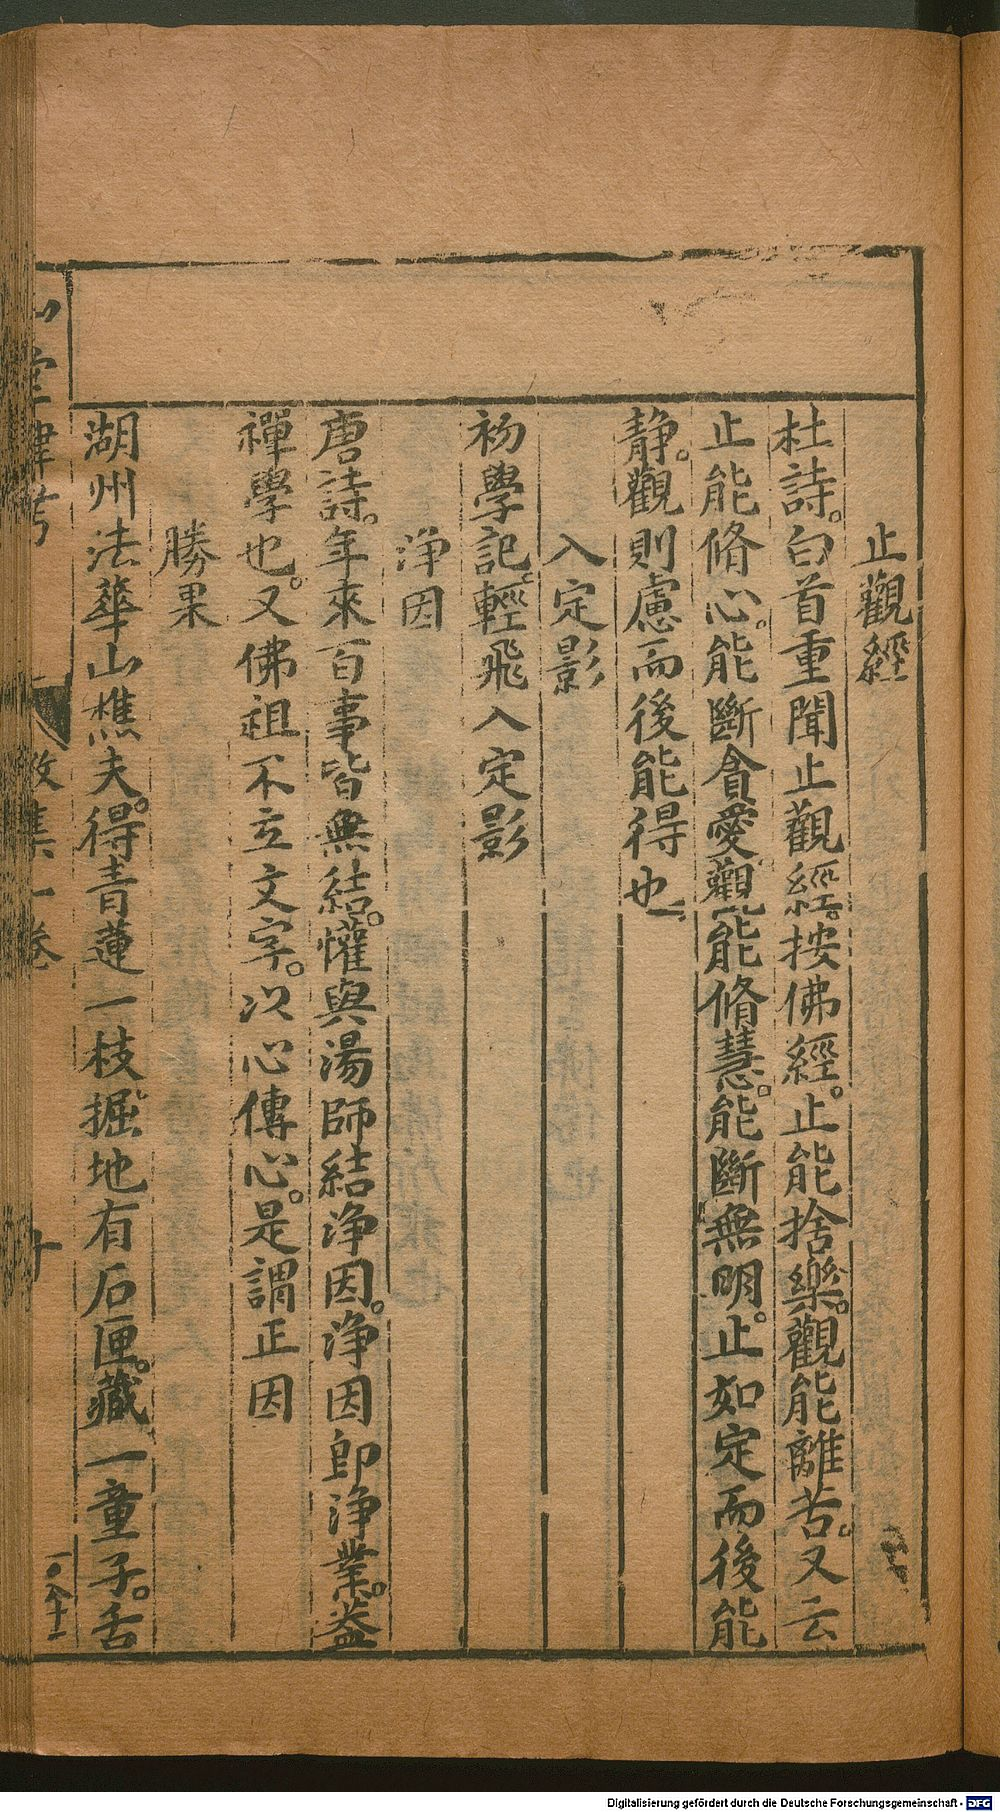 止觀經
杜詩。白首重聞止觀經。按佛經。止能捨樂。觀能離苦。又云
止能脩心。能斷貪愛。觀能脩慧。能斷無明。止如定而後能
靜。觀則慮而後能得也
入定影
初學記。輕飛入定影
淨因
唐詩。年來百事皆無結。懽與湯師結淨因。淨因即淨業。葢
禪學也。又佛祖不立文字。以心傳心。是謂正因
勝果
湖州法華山樵夫。得青蓮一枝。掘地有石匣。藏一童子。舌
堂肆考
徵集一卷
十
一〇八十二
Digitalisierung gefördert durch die Deutsche Forschungsgemeinschaft - DFG